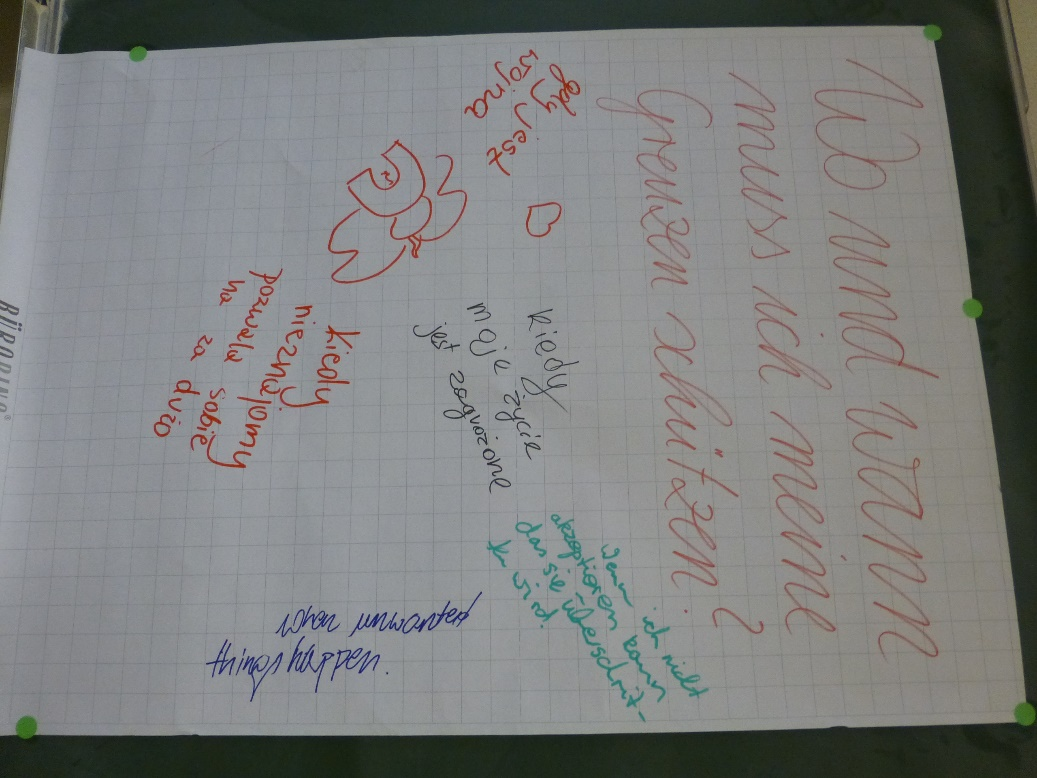 Wo und wann
muss ich meine
Grenzen schützen?
gdy jest
wojna
kiedy
moje życie
jest zagrożone
wenn ich nicht
akzeptieren kann
das sie überschrit-
ten wird.
kiedy
nieznajomy
pozwala sobie
na za dużo
when unwanted
things happen.